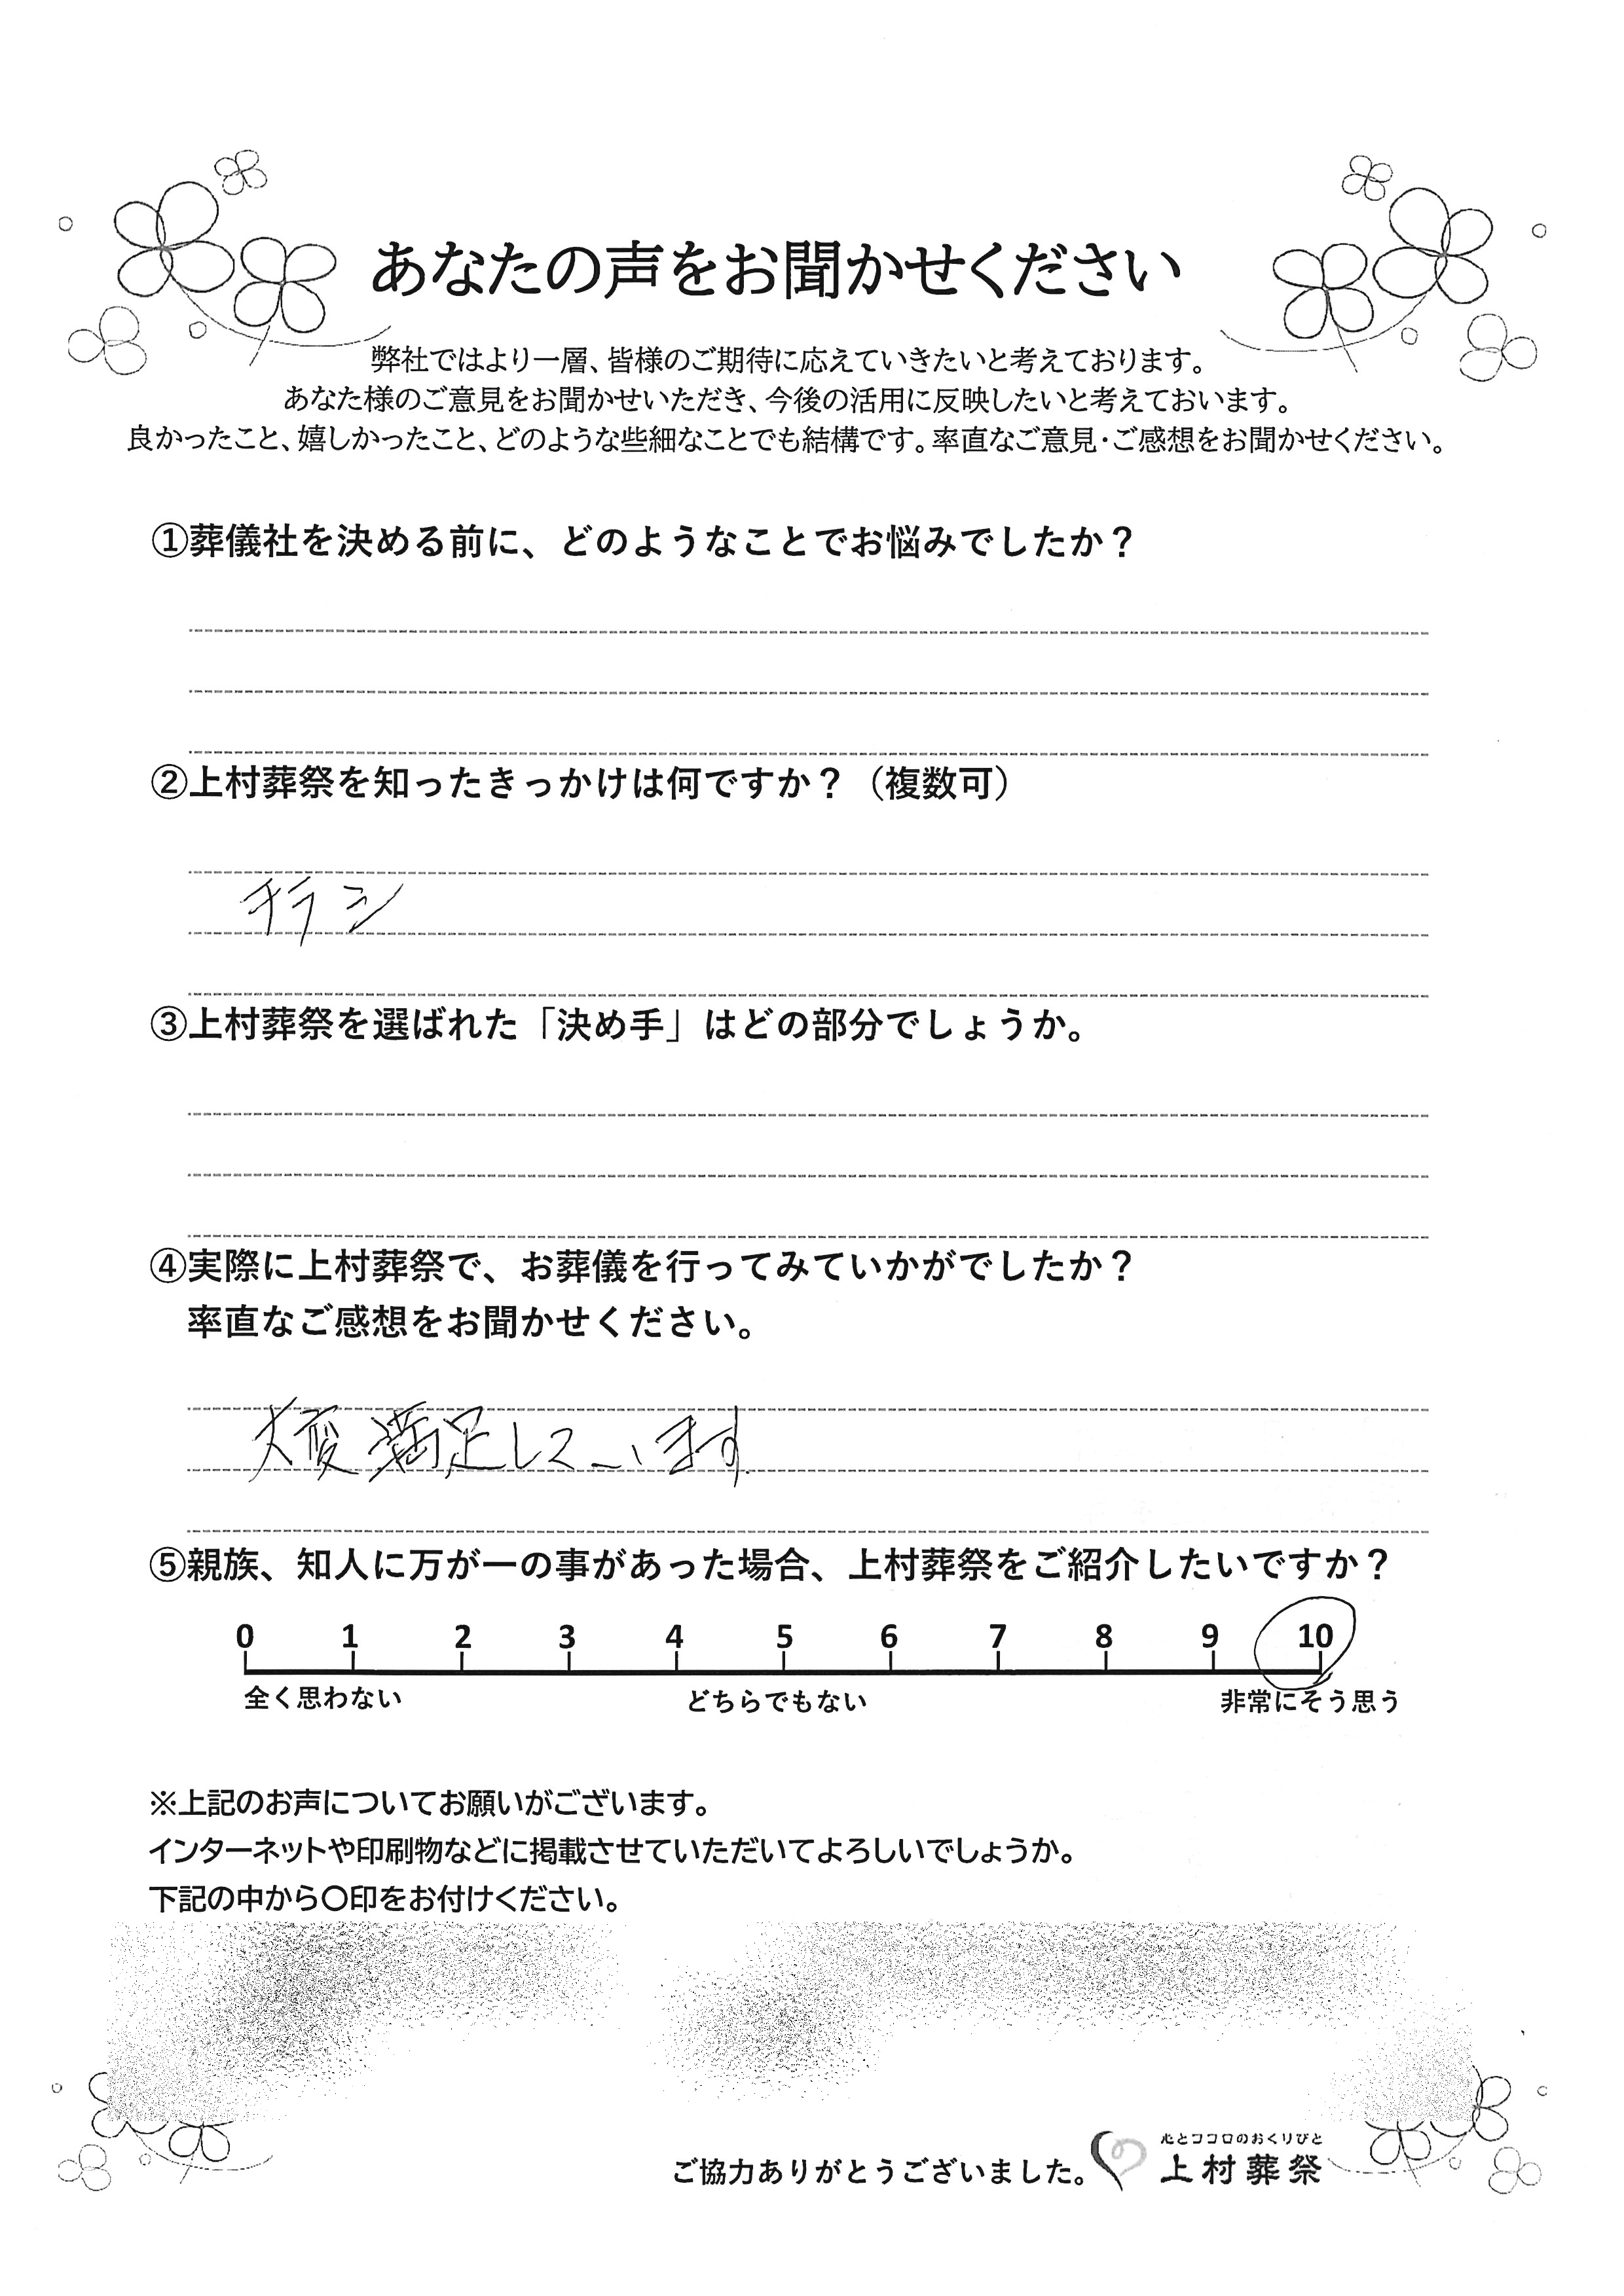 あなたの声をお聞かせください
弊社ではより一層、皆様のご期待に応えていきたいと考えております。
あなた様のご意見をお聞かせいただき、今後の活用に反映したいと考えておいます。
良かったこと、嬉しかったこと、どのような些細なことでも結構です。率直なご意見・ご感想をお聞かせください。
①葬儀社を決める前に、どのようなことでお悩みでしたか？
②上村葬祭を知ったきっかけは何ですか？（複数可）
チラシ
③上村葬祭を選ばれた「決め手」はどの部分でしょうか。
④実際に上村葬祭で、お葬儀を行ってみていかがでしたか？
率直なご感想をお聞かせください。
大変満足しています
⑤親族、知人に万が一の事があった場合、上村葬祭をご紹介したいですか？
0 1 2 3 4 5 6 7 8 9 10
全く思わない どちらでもない 非常にそう思う
※上記のお声についてお願いがございます。
インターネットや印刷物などに掲載させていただいてよろしいでしょうか。
下記の中から〇印をお付けください。
心とココロのおくりびと
ご協力ありがとうございました。 上村葬祭